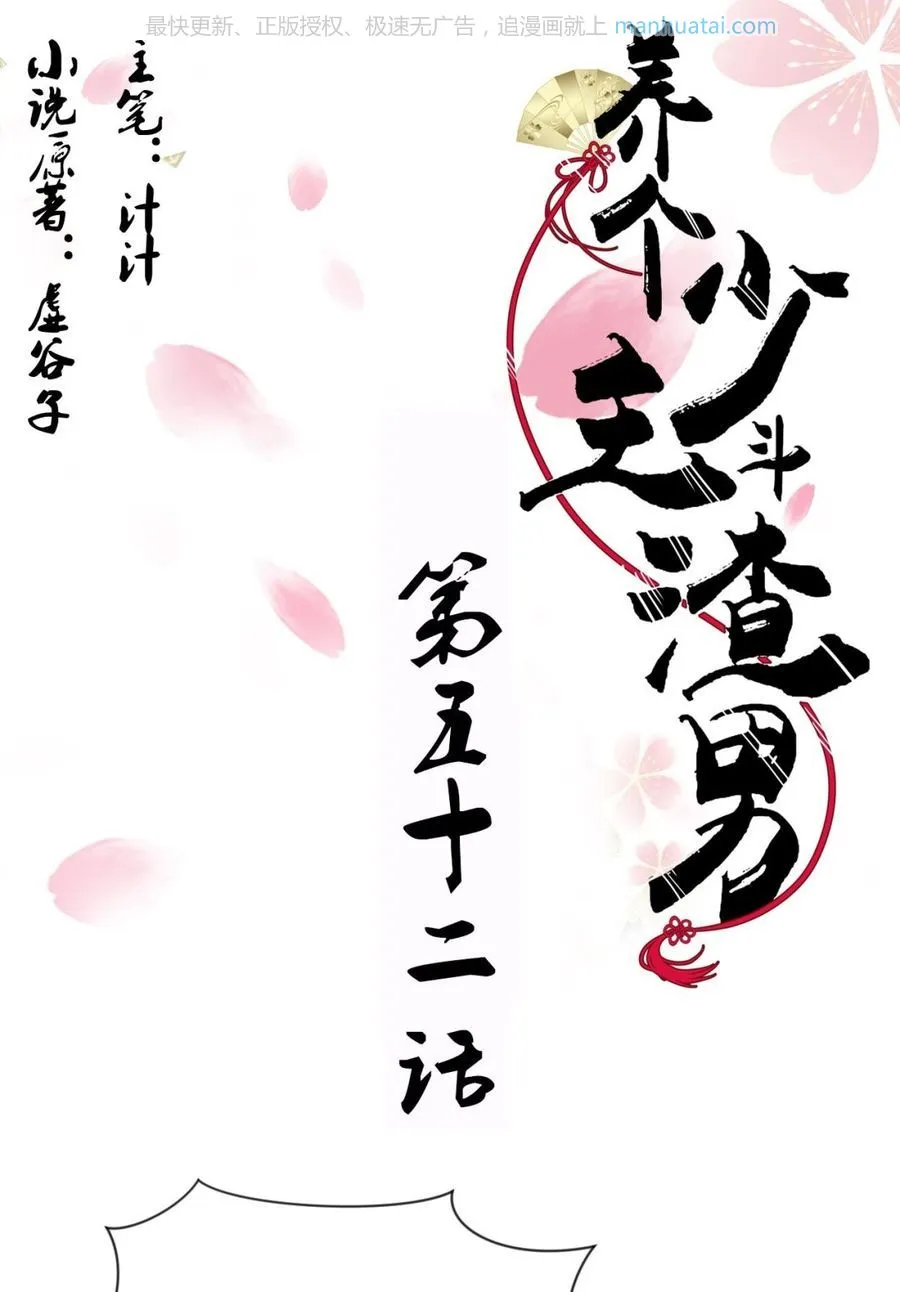 最快更新、正版授权、极速无广告，追漫画就上 manhuatai.com
养个少主斗渣男
第五十二话
主笔：汁汁
小说原著：虚谷子